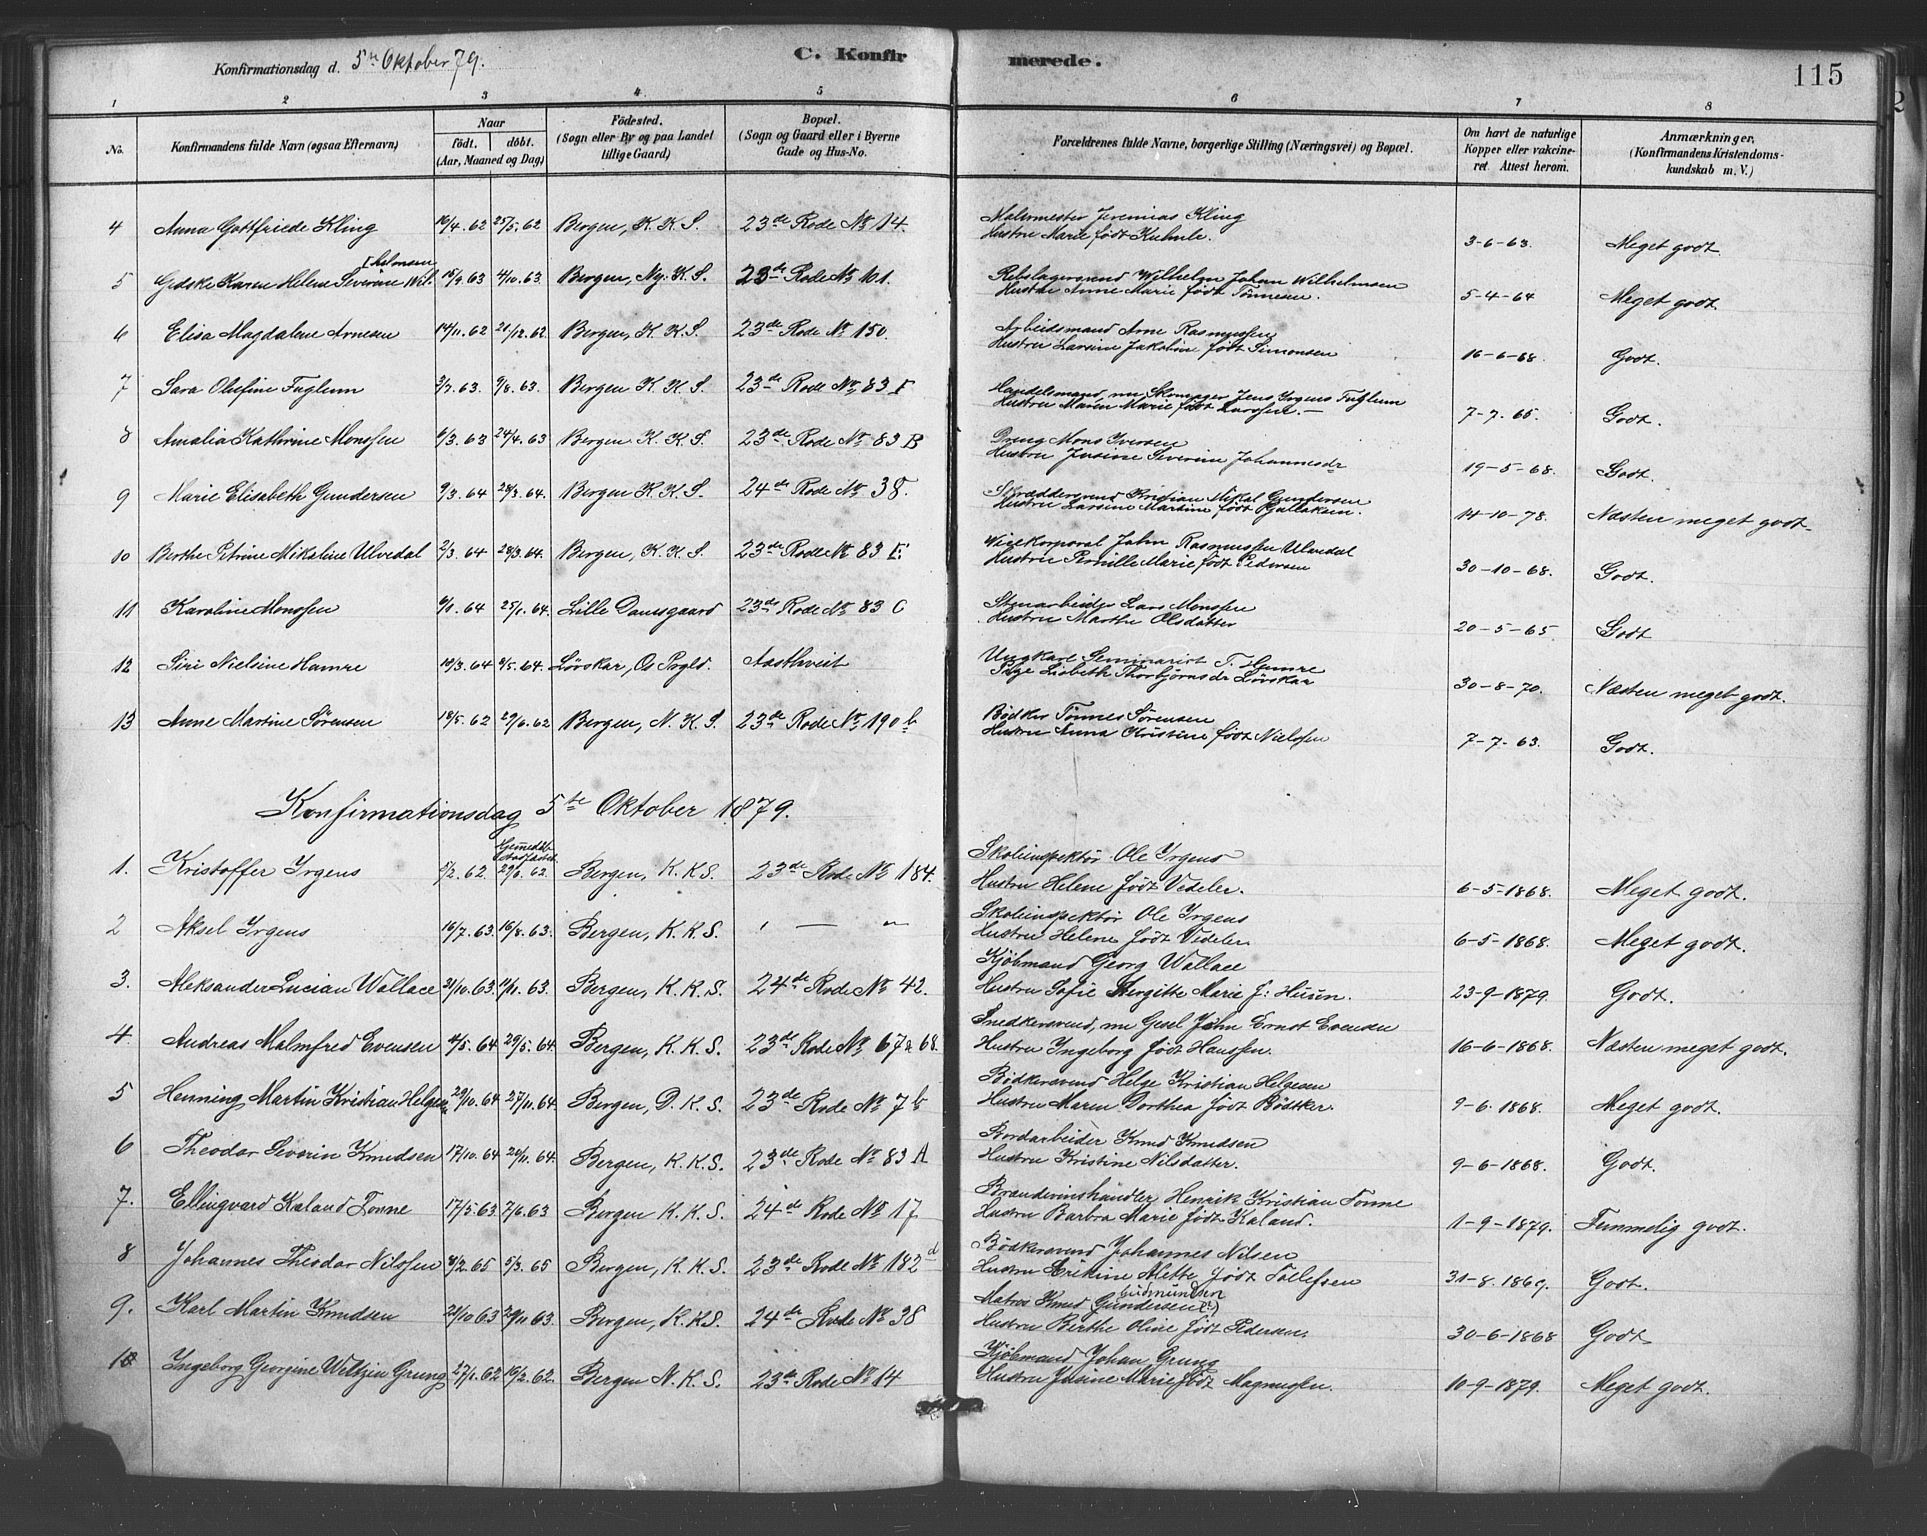 Konfirmationsdag d. 5te Oktober 79.
C. Konfirmerede.
115
1 2 3 4 5 6 7 8
No. Konfirmandens fulde Navn (ogsaa Efternavn) Naar født. døbt. (Aar, Maaned og Dag) Fødested. (Sogn eller By og paa Landet tillige Gaard) Bopæl. (Sogn og Gaard eller i Byerne Gade og Hus-No. Forældrenes fulde Navne, borgerlige Stilling (Næringsvei) og Bopæl. Om havt de naturlige Kopper eller vakcineret. Attest herom. Anmærkninger, (Konfirmandens Kristendomskundskab m. V.)
4 Anna Gottfriede Kling 25/5.62 Bergen, K.K.S. 23de Rode No 14. Malermester Jeremias Kling
Hustru Marie født Kuhnle. 3-6-63. Meget godt.
5 Gedske Karen Helene Severine Wilhelmsen 4/10.63 Bergen, Ny.K.S. 23de Rode No 101. Rebslagersvend Wilhelm Johan Wilhelmsen
Hustru Anne Marie født Tønnesen. 5-4-64 Meget godt.
6 Elisa Magdalene Arnesen 14/11.62 21/12.62 Bergen, K.K.S. 23de Rode No 150. Arbeidsmand Arne Rasmussen
Hustru Larsine Jakobine født Simonsen 16-6-68. Godt.
7 Sara Olufine Fuglum 9/8.63 Bergen K.K.S. 23de Rode No 83 F Handelsmand, nu Skomager Jens Yrgens Fuglum
Hustru Maren Marie født Larssen. 7-7.65. Godt.
8 Amalia Kathrine Monssen 6/3.63 24/4.63 Bergen K.K.S. 23de Rode No 83 B Dreng Mons Iversen
Hustru Jensine Severine Johannesdr 19-5-68. Godt.
9 Marie Elisabeth Gundersen 9/3.64 28/3.64. Bergen K.K.S. 24de Rode No 38. Skræddersvend Kristian Mikal Gundersen
Hustru Larsine Martine født 14-10-78. Næsten meget godt.
10 Berthe Petrine Mikaline Ulvedal 2/3.64 28/3.64. Bergen, K.K.S. 23de Rode No 83 E. Vicekorporal John Rasmussen Ulvedal
Hustru Pernille Marie født Pedersen 30-10-68. Godt.
11 Karoline Monssen 6/1.64 25/1.64. Lille Damsgaard 23de Rode No 83 C Stenarbeider Lars Monssen
Hustru Marthe Olsdatter 20-5-65. Godt
12 Siri Nielsine Hamre 19/3.64 9/5.64. Løvskar, Os Prgld. Aasthveit Ungkarl Seminarist T. Hamre
Pige Lisbeth Thorbjørnsdr Løvskar 30-8-70. Næsten meget godt.
13 Anne Martine Sørensen 18/5.62 29/6.62 Bergen, N.K.S. 23de Rode No 190 b Bødker Tønnes Sørensen
Hustru Anna Kristine født Nielssen 7-7.63. Godt.
Konfirmationsdag 5te Oktober 1879.
1. Kristoffer Irgens 5/2.62. 29/6.62 Bergen, K.K.S. 23de Rode No 184. Skoleinspektør Ole Irgens
Hustru Helene født Vedeler. 6-5-1868. Meget godt.
2 Aksel Irgens 16/7.63. 16/8.63. Bergen, K.K.S. , — " Skoleinspektør Ole Irgens
Hustru Helene født Vedeler 6-5-1868. Meget godt.
3. Aleksander Lucian Wallace 21/10.63. Bergen, K.K.S. 24de Rode No 42. Kjøbmand Georg Wallace
Hustru Sofie Birgitte Marie f: Husen. 23-9-1879. Godt.
4. Andreas Malmfred Evensen 29/5.64. Bergen, K.K.S. 23de Rode No 67 a 68. Snedkersvend, nu Gesel John Ernst Evensen
Hustru Ingeborg født Hanssen. 16-6-1868. Næsten meget godt.
5 Henning Martin Kristian Helgesen 29/10.64 27/11.64 Bergen, D.K.S. 23de Rode No 7 b Bødkersvend Helge Kristian Helgesen
Hustru Maren Dorthea født Bødtker. 9-6.1868. Meget godt.
6 Theodor Severin Knudsen 17/10.64 20/11.64. Bergen, K.K.S. 23de Rode No 83 A Bordarbeider Knud Knudsen
Hustru Kristine Nilsdatter. 9-6-1868. Godt.
7. Ellingvard Kaland Tonne 17/5.63 7/6.63 Bergen K.K.S. 24de Rode No 17 Brændevinshandler Henrik Kristian Tonne
Hustru Barbra Marie født Kaland. 1-9-1879. Temmelig godt.
8 Johannes Theodor Nilssen 5/3.65 Bergen, K.K.S. 23de Rode No 182 d Bødkersvend Johannes Nilsen
Hustru Erikine Mette født Tollefsen 31-8.1869. Godt.
9. Karl Martin Knudsen 21/10 63 29/11.63. Bergen, K.K.S. 24de Rode No 38 Matros Knud Gundersen (?) Gudmundsen
Hustru Berthe Oline født Pedersen. 30-6-1868 Godt
10 Ingeborg Georgine Weltzin Grung 27/1.62 16/2.62. Bergen N.K.S. 23de Rode No 14 Kjøbmand Johan Grung
Hustru Jensine Marie født Magnussen. 10-9-1879. Meget godt.